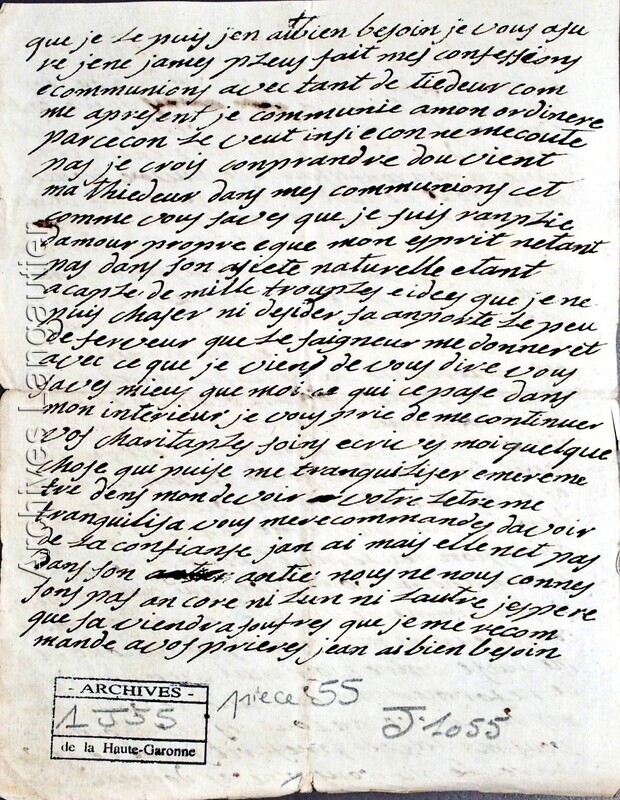 que je le puis jen ai bien besoin je vous asu
re jene james pleus fait mes confessions
e communions avec tant de tiedeur com
me apresent je communie amon ordinere
parcecon le veut insi e conne mecoute
pas je crois conprandre dou vient
ma thiedeur dans mes communions cet
comme vous saves que je suis ranplie
damour propre e que mon esprit netant
pas dans son asiete naturelle etant
acaple de mille trouples e idees que je ne
puis chaser ni desider sa anporte le peu
de ferveur que le saigneur me donneret
avec ce que je viens de vous dire vous
saves mieus que moi ce qui ce pase dans
mon interieur je vous prie de me continuer
vos charitaples soins ecrives moi quelque
chose qui puise me tranquiliser e mereme
tre dens mon devoir votre letre me
tranquilisa vous me recommandes davoir
de la confianse jan ai mais elle net pas
dans son antie nous ne nous connes
sons pas ancore ni lun ni lautre jespere
que sa viendra soufres que je me recom
mande a vos prieres jean ai bien besoin
- ARCHIVES -
1 J 55
de la Haute-Garonne
piece 55
J. 1055
Archives Langautier